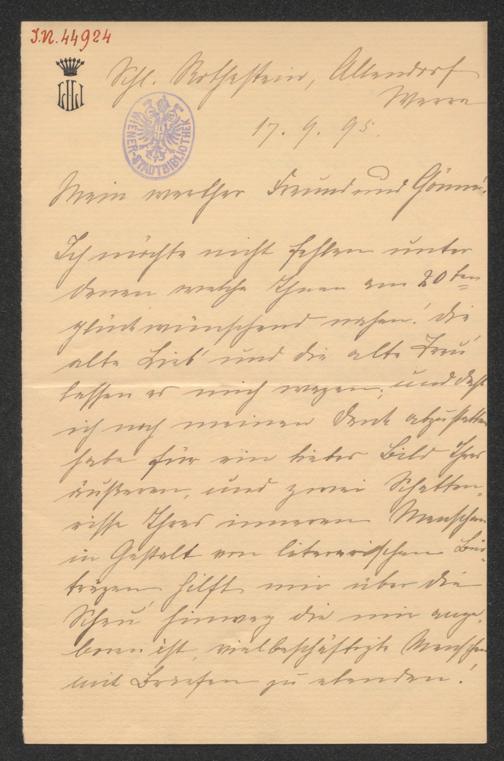 I.N. 44924
LILI
WIENER STADTBIBLIOTHEK
Schl. Rothestein, Allendorf
Werra
17. 9. 95.
Mein werther Freund und Gönner.
Ich möchte nicht fehlen unter
denen welche Ihnen am 20ten
glückwünschend nahen! die
alte Lieb' und die alte Treu'
lassen es mich wagen; und daß
ich noch meinen Dank abzustatten
habe für ein liebes Bild Ihres
äußeren, und zwei Schatten-
risse Ihres inneren Menschen
in Gestalt von literarischen Bei-
trägen hilft mir über die
Scheu hinweg die mir ange-
boren ist, vielbeschäftigte Menschen
mit Briefen zu